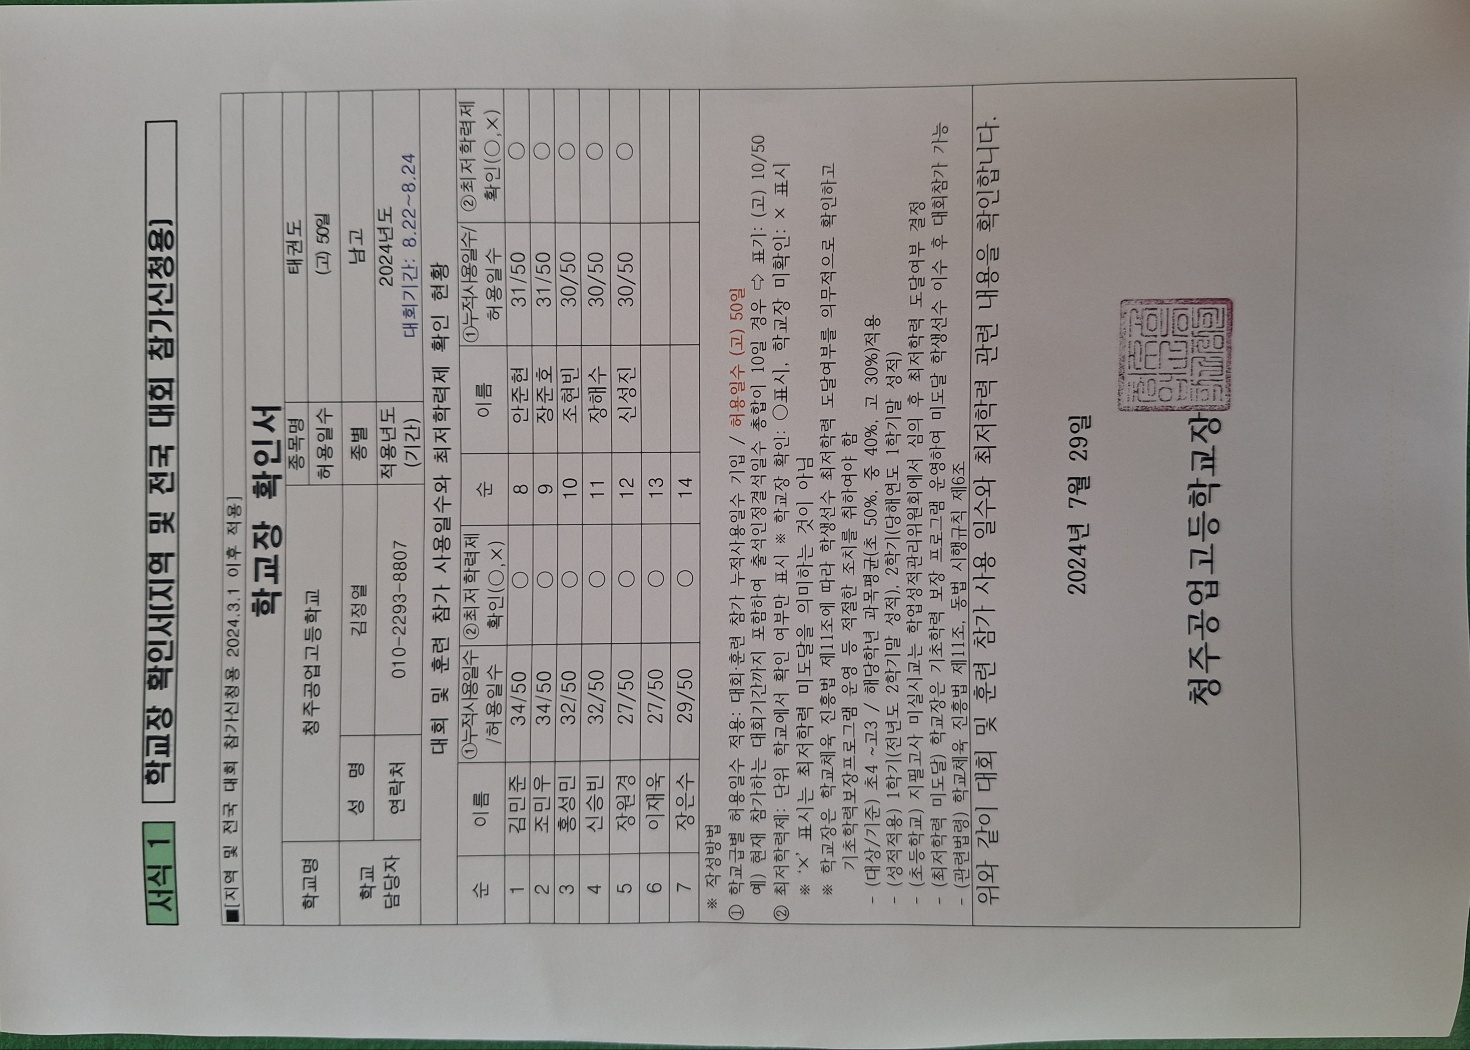 서식 1 학교장 확인서(지역 및 전국 대회 참가신청용)
■[지역 및 전국 대회 참가신청용 2024.3.1 이후 적용]
학교장 확인서
학교명 청주공업고등학교 종목명 태권도
허용일수 (고) 50일
학교 담당자 성 명 김정열 종별 남고
연락처 010-2293-8807 적용년도 (기간) 2024년도
대회기간: 8.22~8.24
대회 및 훈련 참가 사용일수와 최저학력제 확인 현황
순 이름 ①누적사용일수/허용일수 ②최저학력제 확인(○,×) 순 이름 ①누적사용일수/허용일수 ②최저학력제 확인(○,×)
1 김민준 34/50 ○ 8 안준현 31/50 ○
2 조민우 34/50 ○ 9 장준호 31/50 ○
3 홍성민 32/50 ○ 10 조현빈 30/50 ○
4 신승빈 32/50 ○ 11 장해수 30/50 ○
5 장원경 27/50 ○ 12 신성진 30/50 ○
6 이재욱 27/50 ○ 13
7 장은수 29/50 ○ 14
※ 작성방법
① 학교급별 허용일수 적용: 대회·훈련 참가 누적사용일수 기입 / 허용일수 (고) 50일
예) 현재 참가하는 대회기간까지 포함하여 출석인정결석일수 총합이 10일 경우 ⇨ 표기: (고) 10/50
② 최저학력제: 단위 학교에서 확인 여부만 표시 ※ 학교장 확인: ○표시, 학교장 미확인: × 표시
※ '×' 표시는 최저학력 미도달을 의미하는 것이 아님
※ 학교장은 학교체육 진흥법 제11조에 따라 학생선수 최저학력 도달여부를 의무적으로 확인하고
기초학력보장프로그램 운영 등 적절한 조치를 취하여야 함
- (대상/기준) 초4 ~고3 / 해당학년 과목평균(초 50%, 중 40%, 고 30%)적용
- (성적적용) 1학기(전년도 2학기말 성적), 2학기(당해연도 1학기말 성적)
- (초등학교) 지필고사 미실시교는 학업성적관리위원회에서 심의 후 최저학력 도달여부 결정
- (최저학력 미도달) 학교장은 기초학력 보장 프로그램 운영하여 미도달 학생선수 이수 후 대회참가 가능
- (관련법령) 학교체육 진흥법 제11조, 동법 시행규칙 제6조
위와 같이 대회 및 훈련 참가 사용 일수와 최저학력 관련 내용을 확인합니다.
2024년 7월 29일
청주공업고등학교장